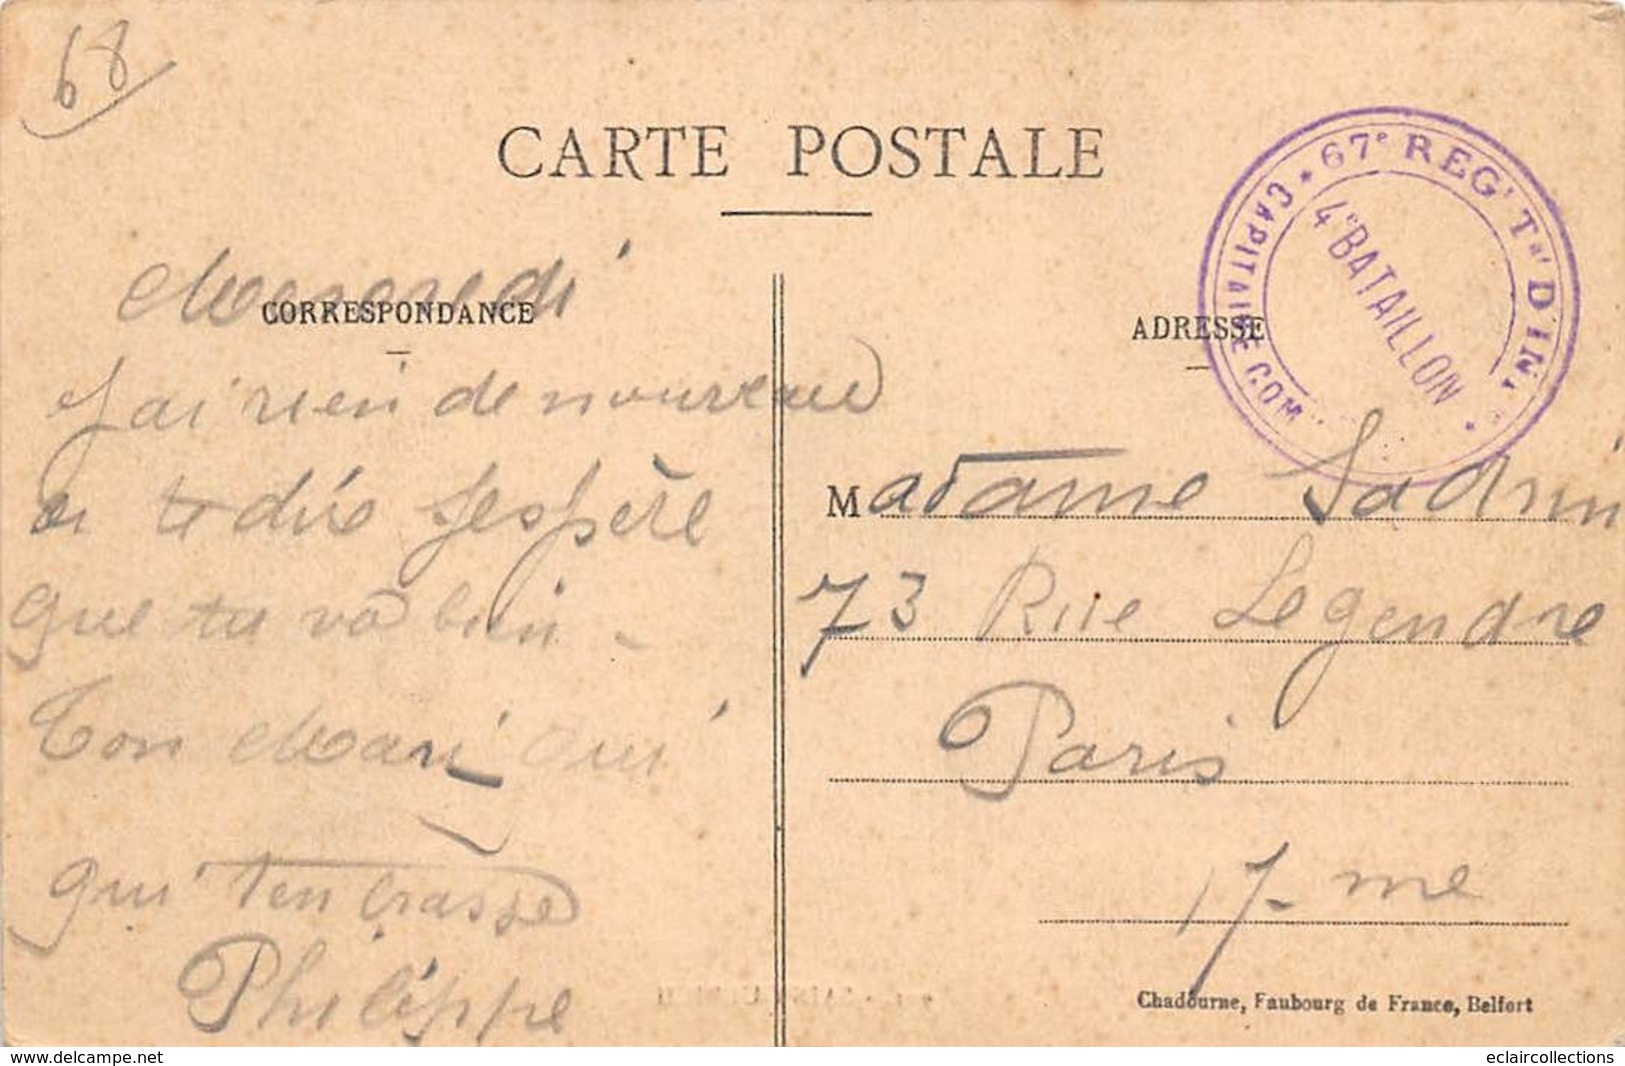 68
CARTE POSTALE
67e REGt Tal D'IN
CAPITAINE COM
4e BATAILLON
CORRESPONDANCE
ADRESSE
Mercredi
J'ai rien de nouveau
a te dire J'espère
que tu va bien -
Ton Mari
qui t'en brasse
Philippe
Madame
73 Rue Legendre
Paris
17-me
SAINT ULRICH
Chadourne, Faubourg de France, Belfort
www.delcampe.net
eclaircollections